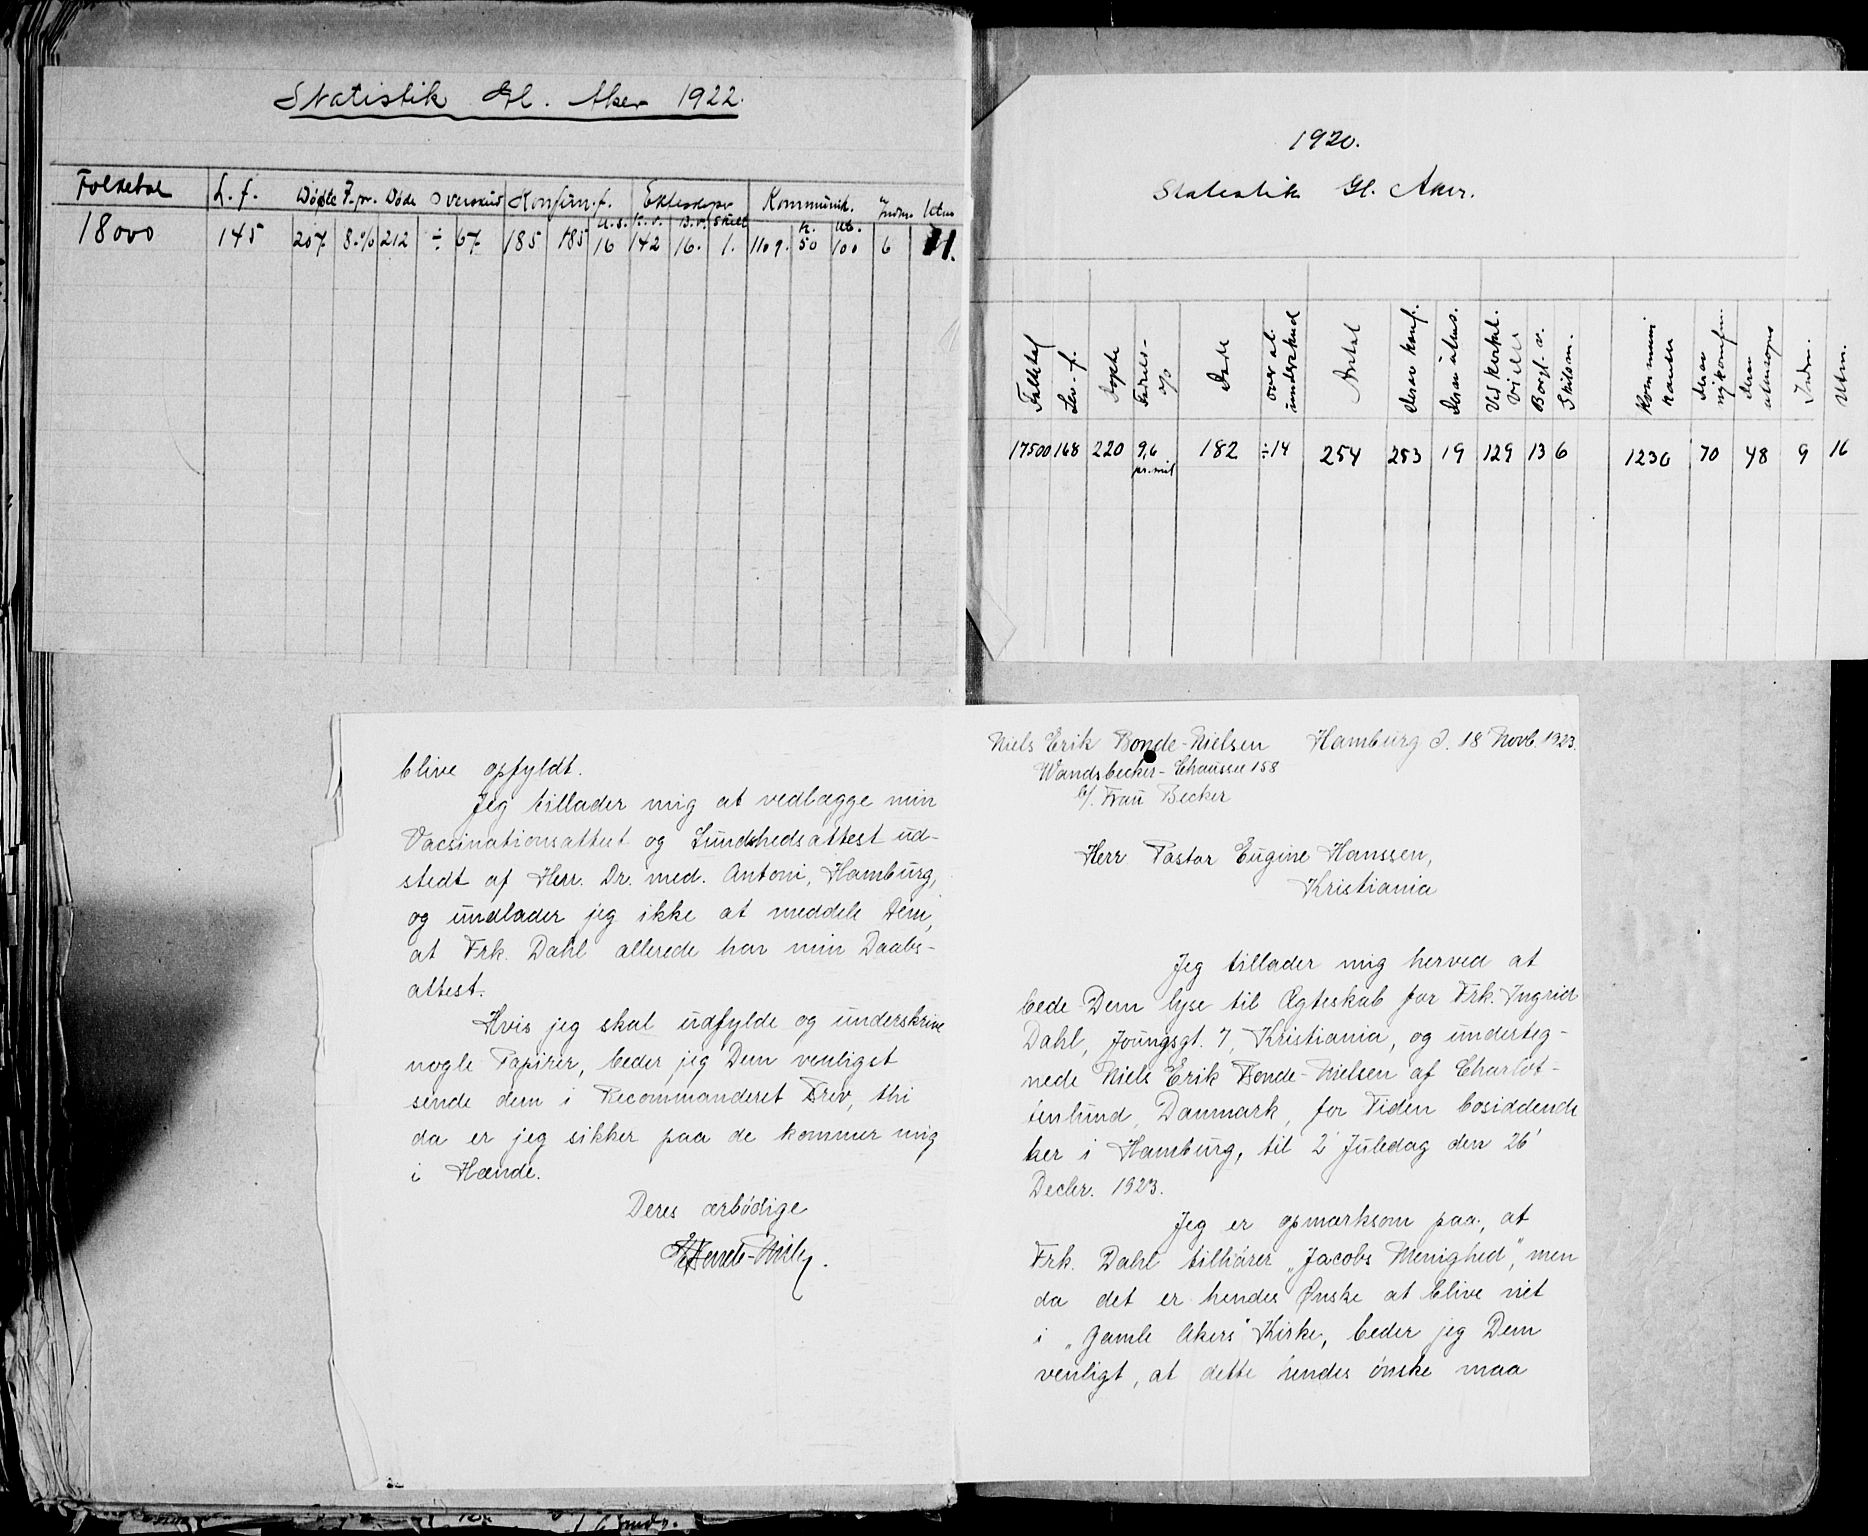 Statistik Gl. Aker 1922.
Folketal L.f. Døpte F.pr. Døde Overskud Konfirm.f. Ekteskaper Kommunik. Indm. Utm.
U.s. K.v. B.v. Skilt K. Ut.
18000 145 207 8.% 212 ÷ 67 185 185 16 142 16. 1. 1109. 50 100 6 11.
1920.
Statistik Gl. Aker.
Folketal Lev. f. Døpte Fødsels- o/o Døde over el. underskud Antal derav konf. derav utens. Ved kirkel. vielse Borgl. v. Skilsm. Kommunikanter derav nykonfirm. derav utensogns Indm. Utm.
17500 168 220 9,6 pr. mil 182 ÷14 254 253 19 129 13 6 1230 70 48 9 16
Niels Erik Bonde-Nielsen Hamburg d. 18 Novb. 1923.
Wandsbecker-Chaussee 158
b/. Frau Becker
Herr Pastor Eugine Hanssen,
Kristiania
Jeg tillader mig herved at
bede Dem lyse til Ægteskab for Frk. Ingrid
Dahl, Joungsgt. 7, Kristiania, og underteg-
nede Niels Erik Bonde-Nielsen af Charlot-
tenlund, Danmark, for Tiden bosiddende
her i Hamburg, til 2' Juledag den 26'
Decbr. 1923.
Jeg er opmærksom paa, at
Frk. Dahl tilhører „Jacobs Menighed", men
da det er hendes Ønske at blive viet
i „Gamle Akers" Kirke, beder jeg Dem
venligt, at dette hendes ønske maa
blive opfyldt.
Jeg tillader mig at vedlægge min
Vacsinationsattest og Sundshedsattest ud-
stedt af Herr. Dr. med. Antoni, Hamburg,
og undlader jeg ikke at meddele Dem,
at Frk. Dahl allerede har min Daabs-
attest.
Hvis jeg skal udfylde og underskrive
nogle Papirer, beder jeg Dem venligst
sende dem i Recommanderet Brev, thi
da er jeg sikker paa de kommer mig
i Hænde.
Deres ærbødige
Bonde-Nielsen.